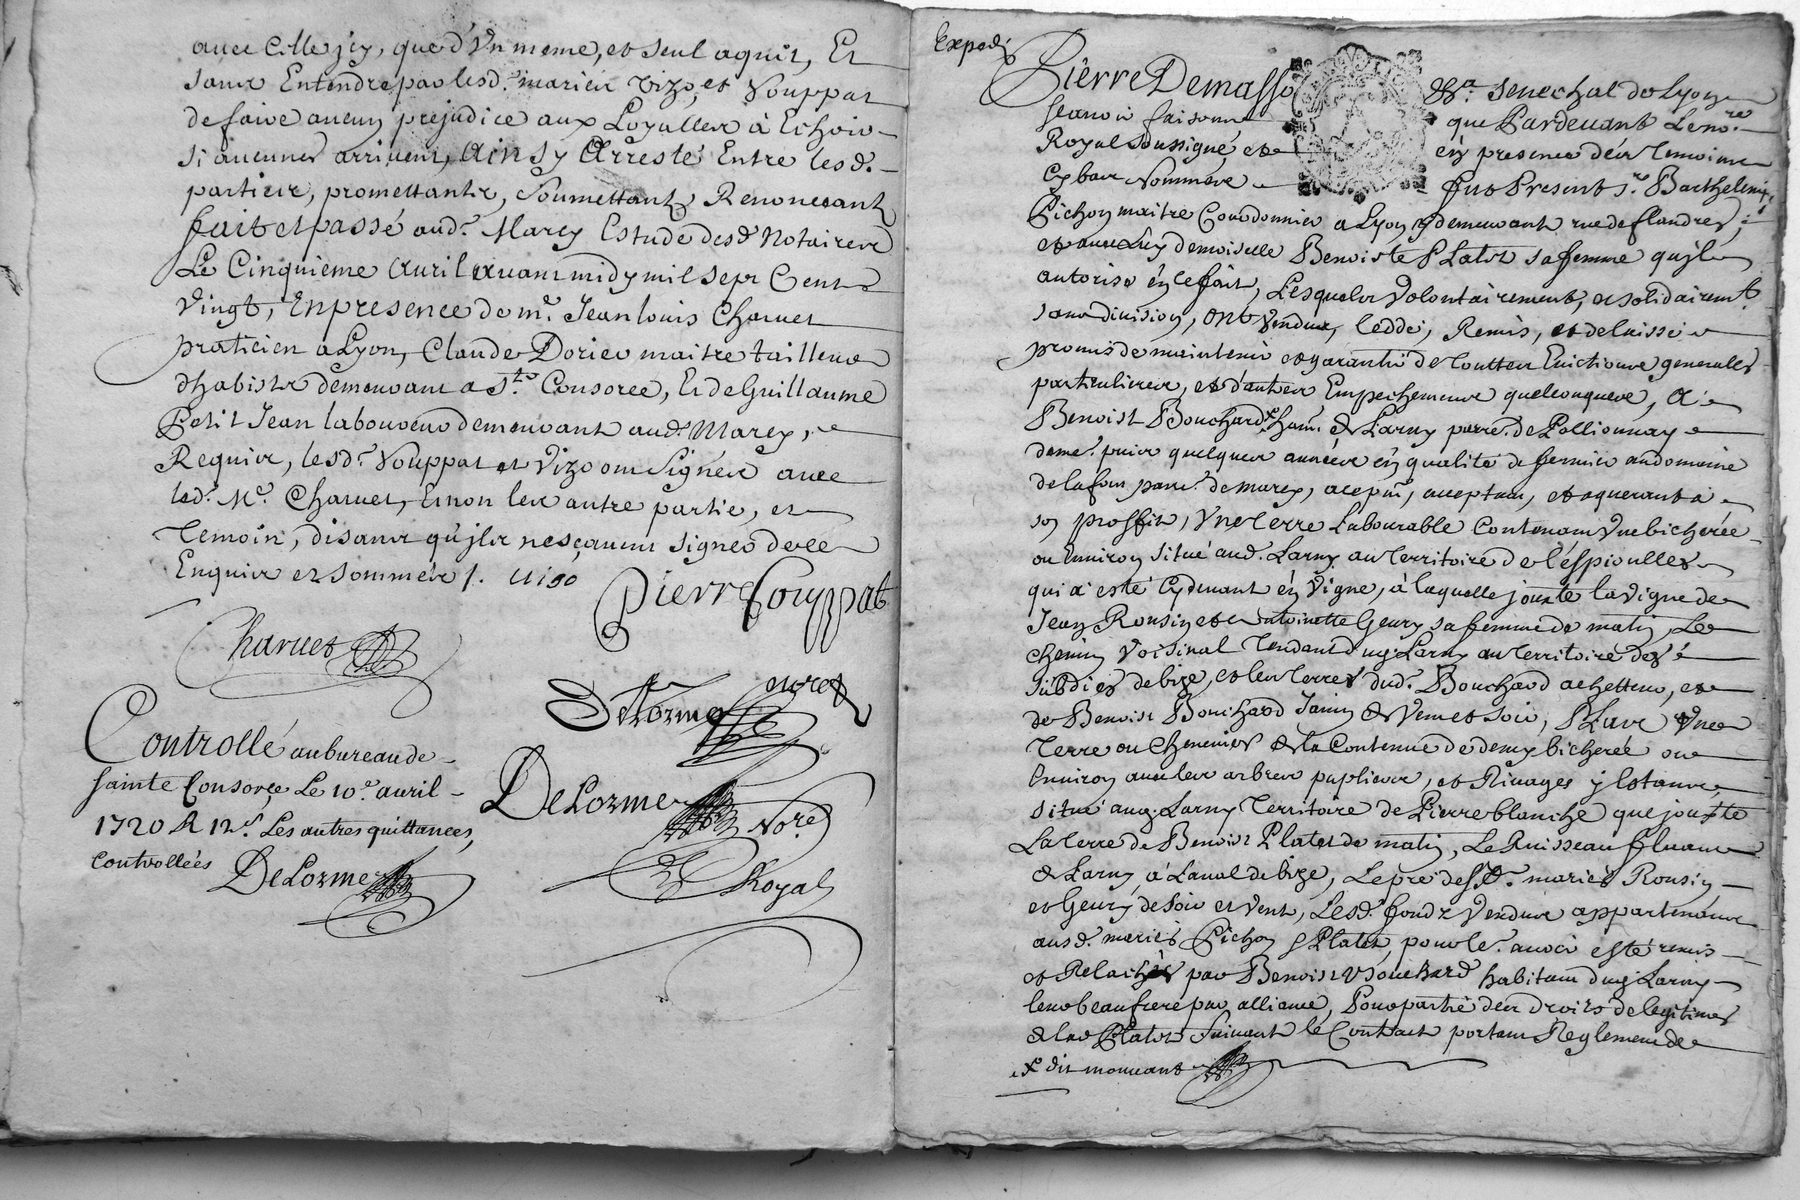 avec Celle jcy, que d'Vn meme, et seul aquit, Et
sans Entendre par lesd. mariez Vizo, et Vouppat
de faire aucun prejudice aux Loyalles à Echoir
si aucunes arrivent, Ainsy Arresté Entre lesd.
parties, promettants, Soumettants Renonceant
fait et passé aud. Marcy Estude desd Notaires
Le Cinquieme Avril avant midy mil sept Cent
Vingt, En presence de mr. Jean louis Charvet
praticien a Lyon, Claude Dorier maitre tailleur
dhabits demeurant a Ste Consorce, Et de Guillaume
Petit Jean laboureur demeurant aud. Marcy,
Requis, lesd. Vouppat et Vizo ont Signés avec
led. Mr. Charvet, Et non les autre partie, et
Temoin, disants qu'jls nesçavent signer de ce
Enquis et Sommés /. Vizo
Pierre Vouppat
Charvet
DeLorme
Controllé au bureau de
Sainte Consorce Le 10e. avril
1720 R 12s. Les autres quittances
Controllées
DeLorme
DeLorme Nore
Royal
Expedié
Pierre Demasso Esr. Senechal de Lyon
Sçavoir faisons que Pardevant Le nore.
Royal Soussigné et en presence des temoins
Cy bas Nommés fut Present Sr. Barthelemy
Pichon maitre Cordonnier a Lyon y demeurant rue de flandres,
et avec Luy demoiselle Benoiste Platet sa femme qu'jl
autorise en ce fait, Lesquels Volontairement, et solidairemt.
sans division, ont Vendus, Ceddé, Remis, et delaissé
promis de maintenir et garantir de touttes Evictions generalles
particulieres, et d'autres Empechements quelconques, A
Benoist Bouchard hant. de Larny parre. de Pollionnay
deme. puis quelques années en qualité de fermier au domaine
de lafon parr. de marcy, acceptant, et aquerant a
son proffit, Vne terre Labourable Contenant Vne bicherée
ou Environ situé aud. Larny au territoire de l'espioulles
qui a esté Cydevant en Vigne, à laquelle jouxte la vigne de
Jean Ronsin et Antoinette Geury sa femme de matin, Le
chemin Voisinal Tendant dug. Larny au territoire des
de bize, et les terres dud. Bouchard achetteur, et
de Benoist Bouchard Jainy de Vent et soir, Plus Vne
Terre ou Chenevier de la Contenue de demy bicherée ou
Environ avec les arbres puplieurs, et Rivages y Estants
situé aug. Larny territoire de Pierre blanche que jouxte
La terre de Benoist Platet de matin, Le Ruisseau fluant
de Larny à Laval de bize, Le pré desd. mariés Ronsin
et Geury de soir et Vent, Lesd. fonds Vendus appartenants
ausd. mariés Pichon & Platet, pour le. avoir esté remis
et Relachés par Benoist Bouchard habitant dug Larny
leur beau frere par alliance, Pour partie des droits de legitimes
de lad Platet Suivant le Contract portant Reglement de
x dit mouvant